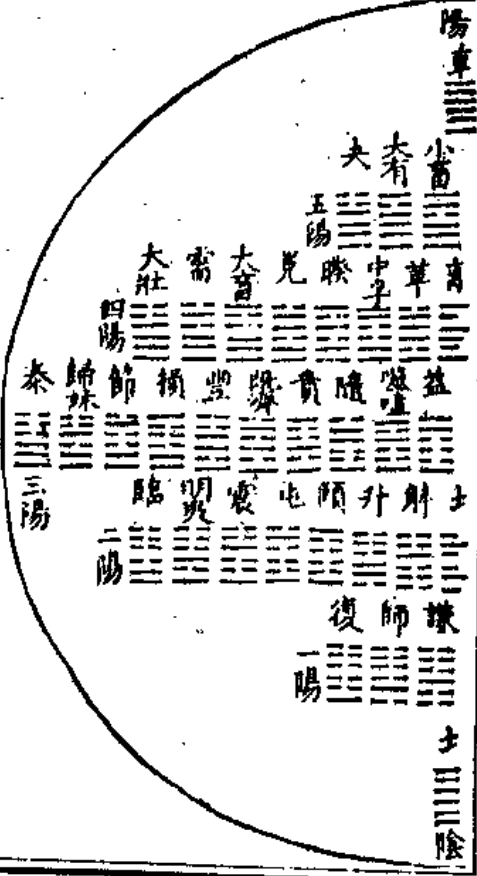 陽
小畜 大有 夬 五陽
离 革 中孚 睽 兌 大畜 需 大壯 四陽
益 噬嗑 隨 賁 既濟 豐 損 節 歸妹 泰 三陽
土 解 升 頤 屯 震 明夷 臨 二陽
謙 師 復 一陽
土
陰